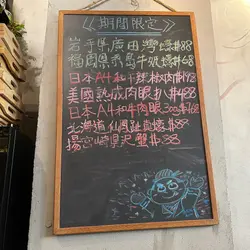 期間限定
岩手県廣田灣蠔$88
福岡県糸島牛級蠔$68
日本A4和牛
美國熟成肉眼扒$88
日本A4和牛肉眼300g$168
北海道仙鳳趾蠔$88
宮崎県沢蟹$88